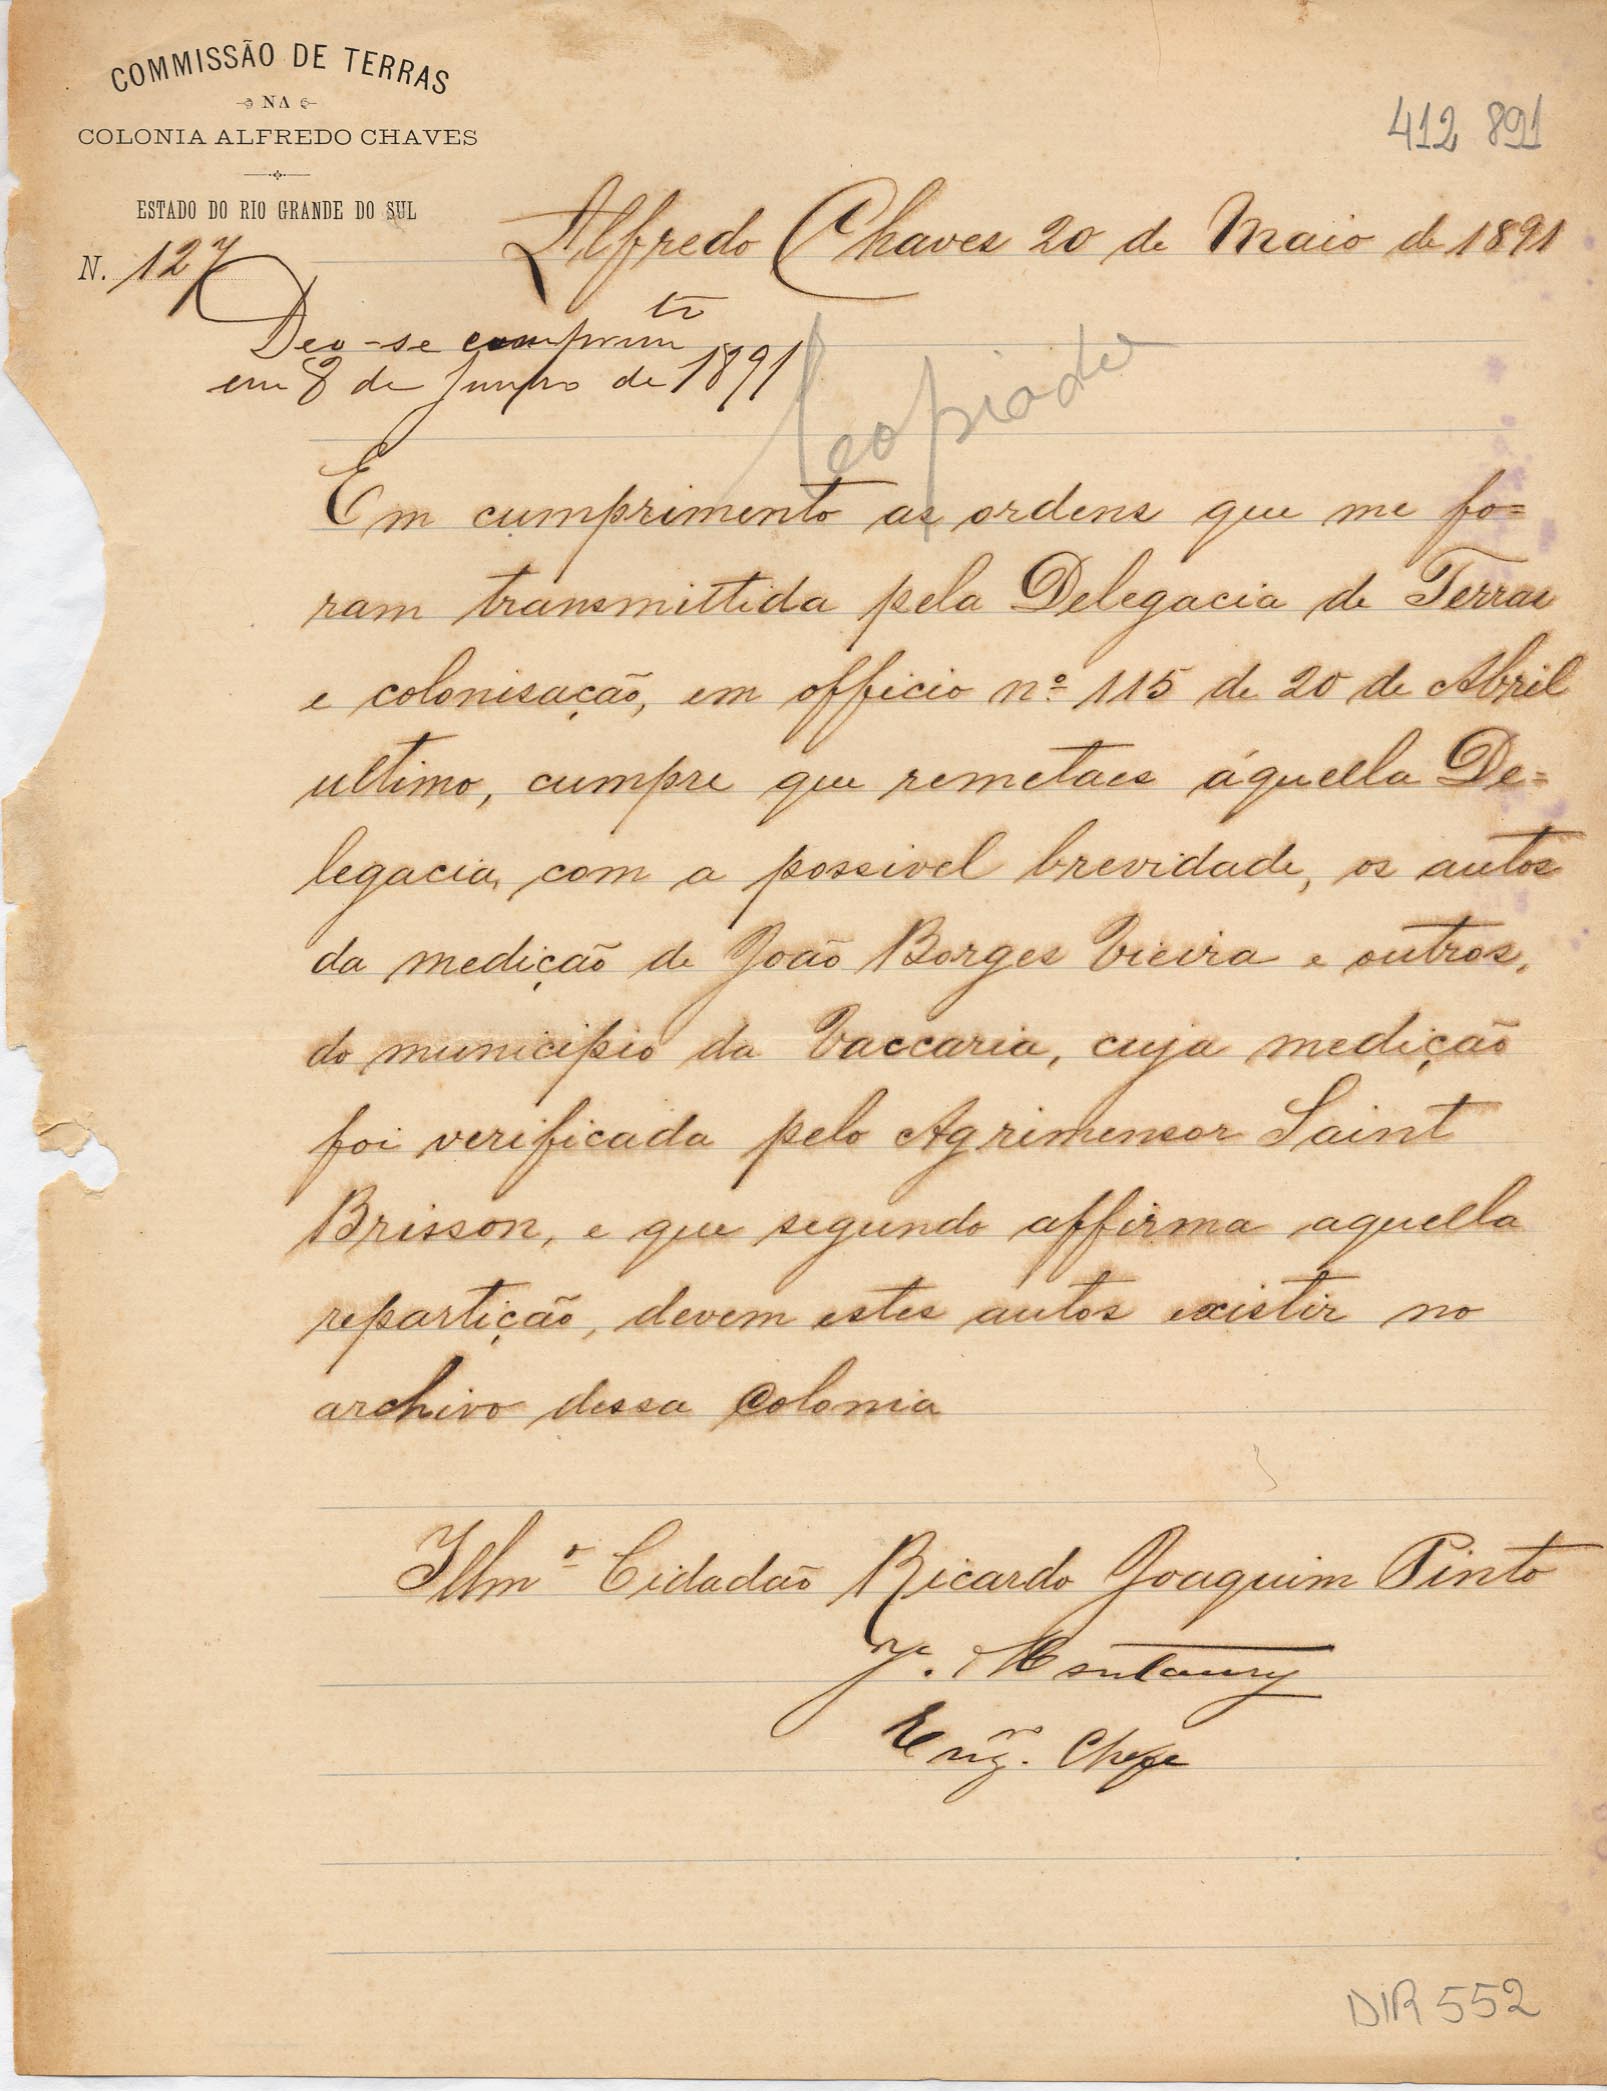 COMMISSÃO DE TERRAS
NA
COLONIA ALFREDO CHAVES
ESTADO DO RIO GRANDE DO SUL
N. 127
412 891
Alfredo Chaves 20 de Maio de 1891
Deo-se comprimto
em 8 de Junho de 1891
Copiado
Em cumprimento as ordens que me fo=
ram transmittida pela Delegacia de Terras
e colonisação, em officio nº 115 de 20 de Abril
ultimo, cumpre que remetaes áquella De=
legacia, com a possivel brevidade, os autos
da medição de João Borges Vieira e outros,
do municipio da Vaccaria, cuja medição
foi verificada pelo Agrimensor Saint
Brisson, e que segundo affirma aquella
repartição, devem estes autos existir no
archivo dessa Colonia
Illmº Cidadão Ricardo Joaquim Pinto
J. Montaury
Engro. Chefe
DIR 552